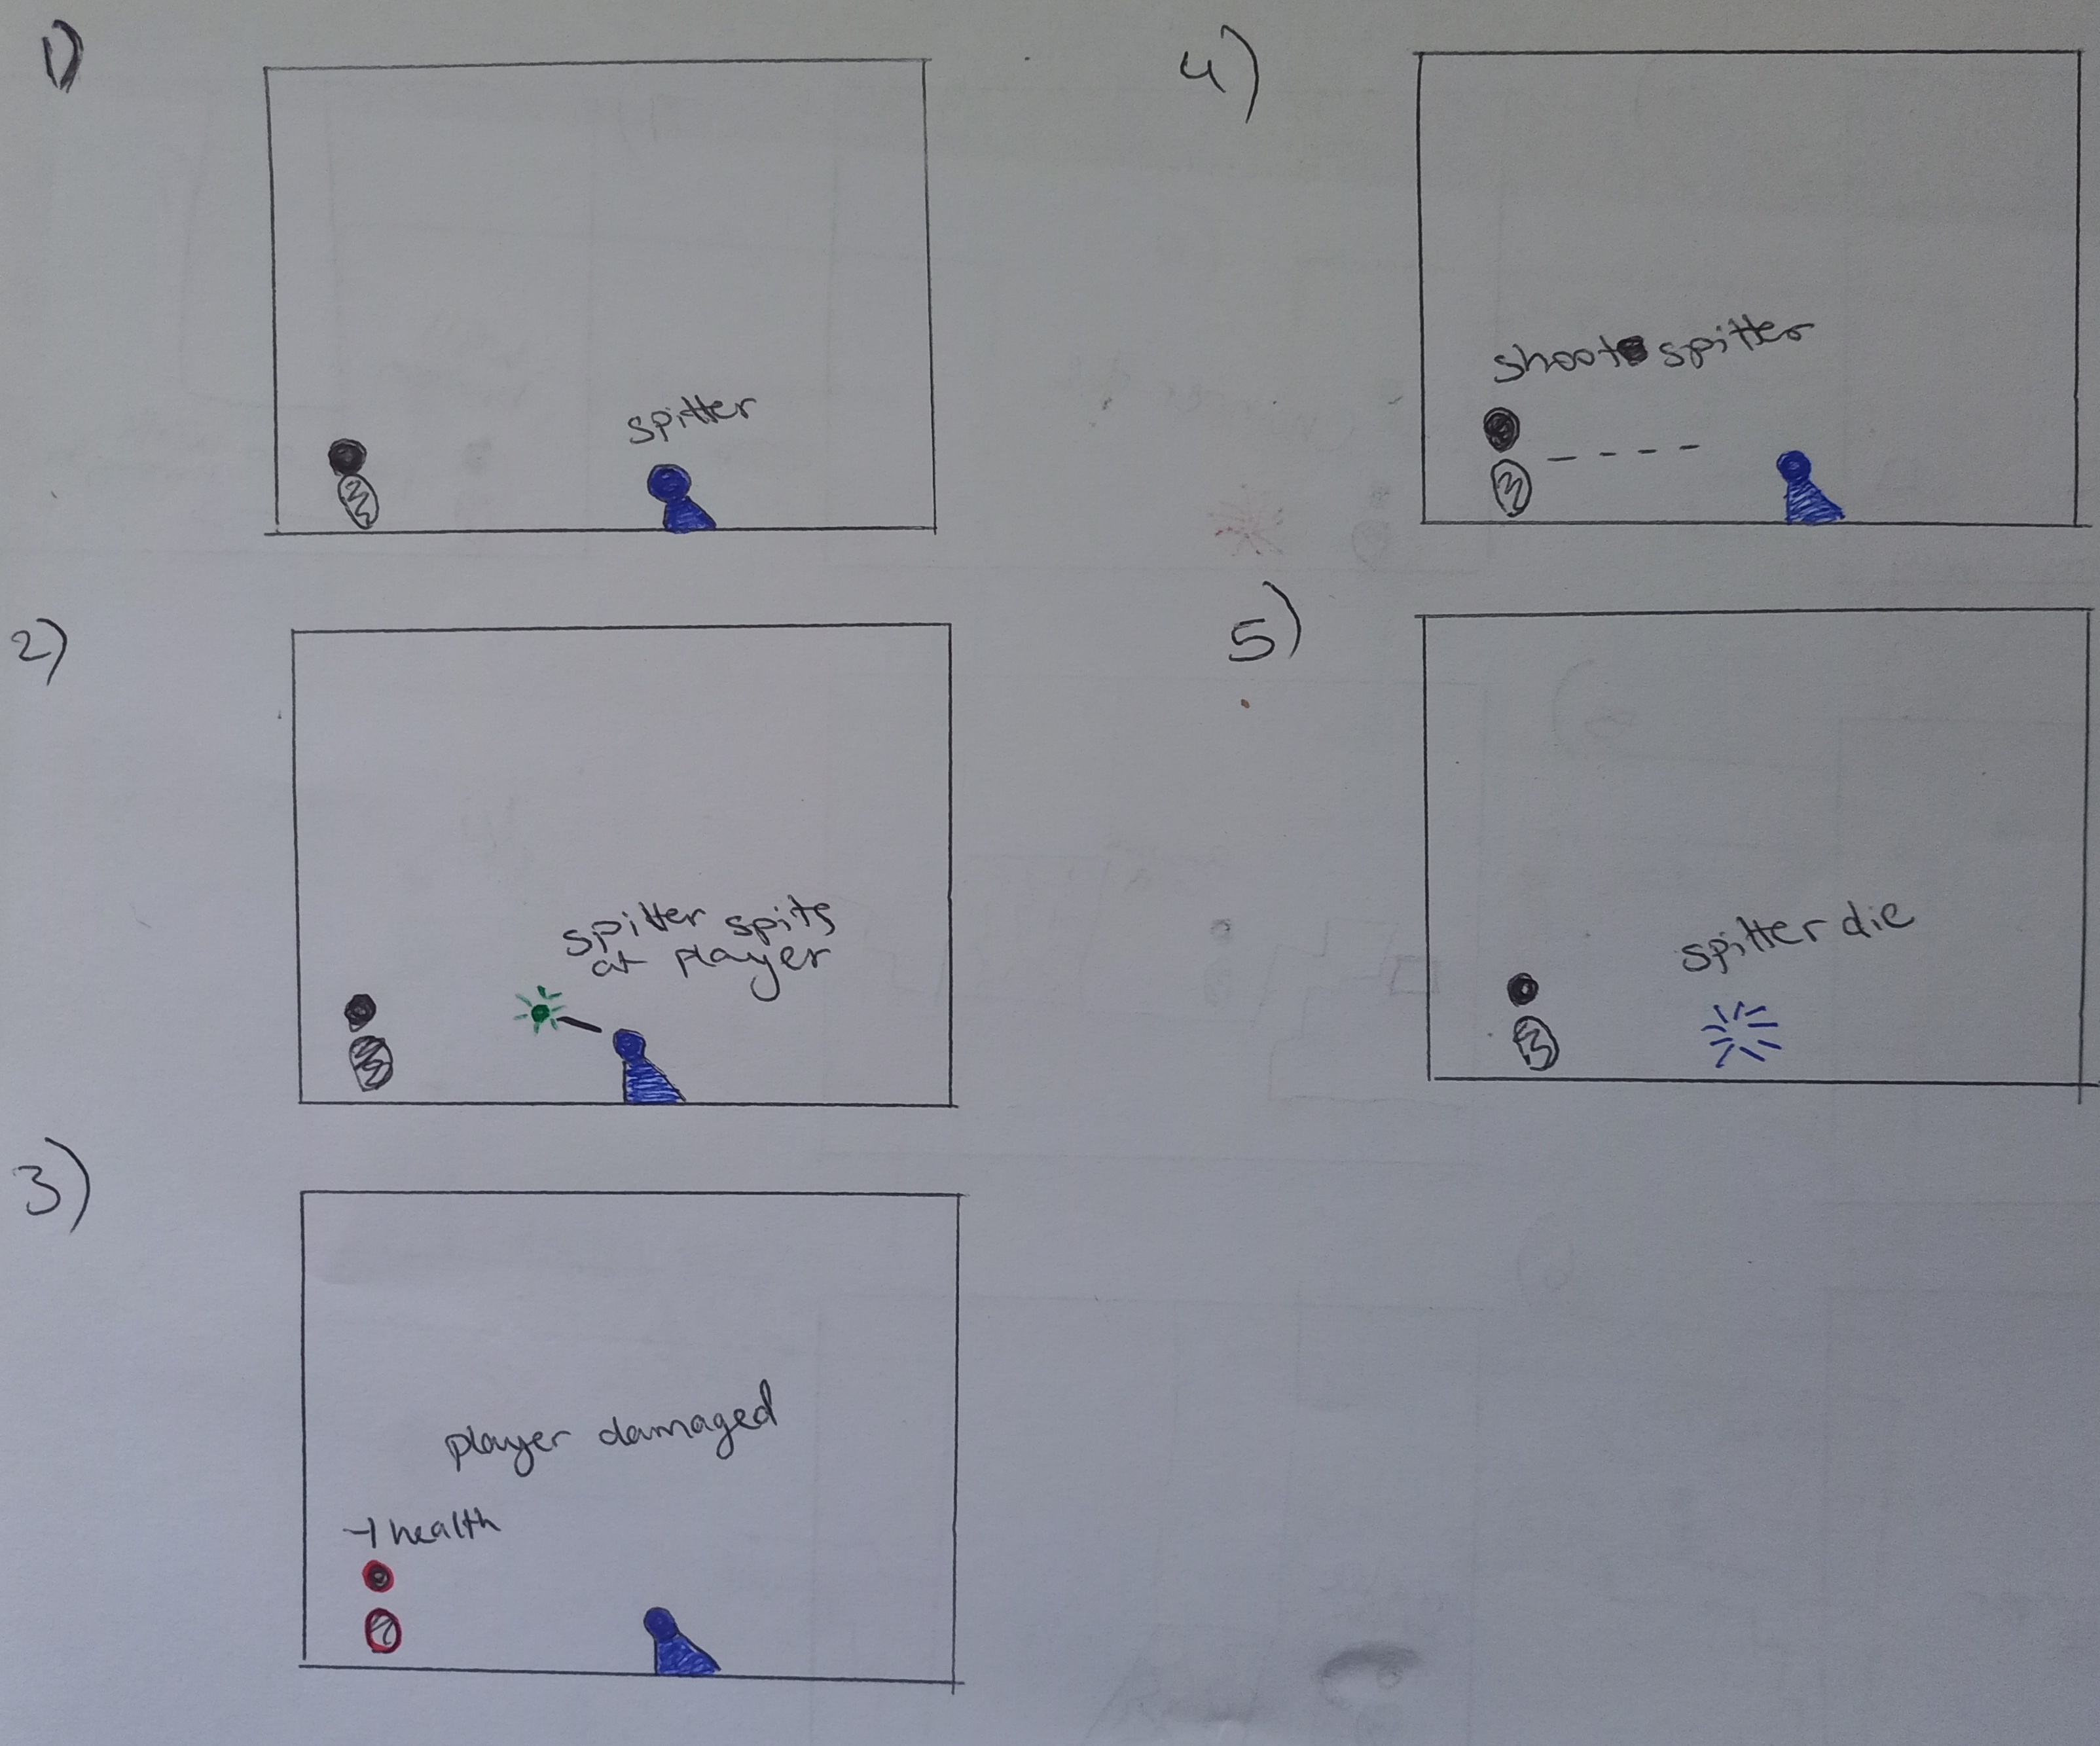 1)
spitter
2)
spitter spits
at player
3)
player damaged
-1 health
4)
shoot spitter
5)
spitter die